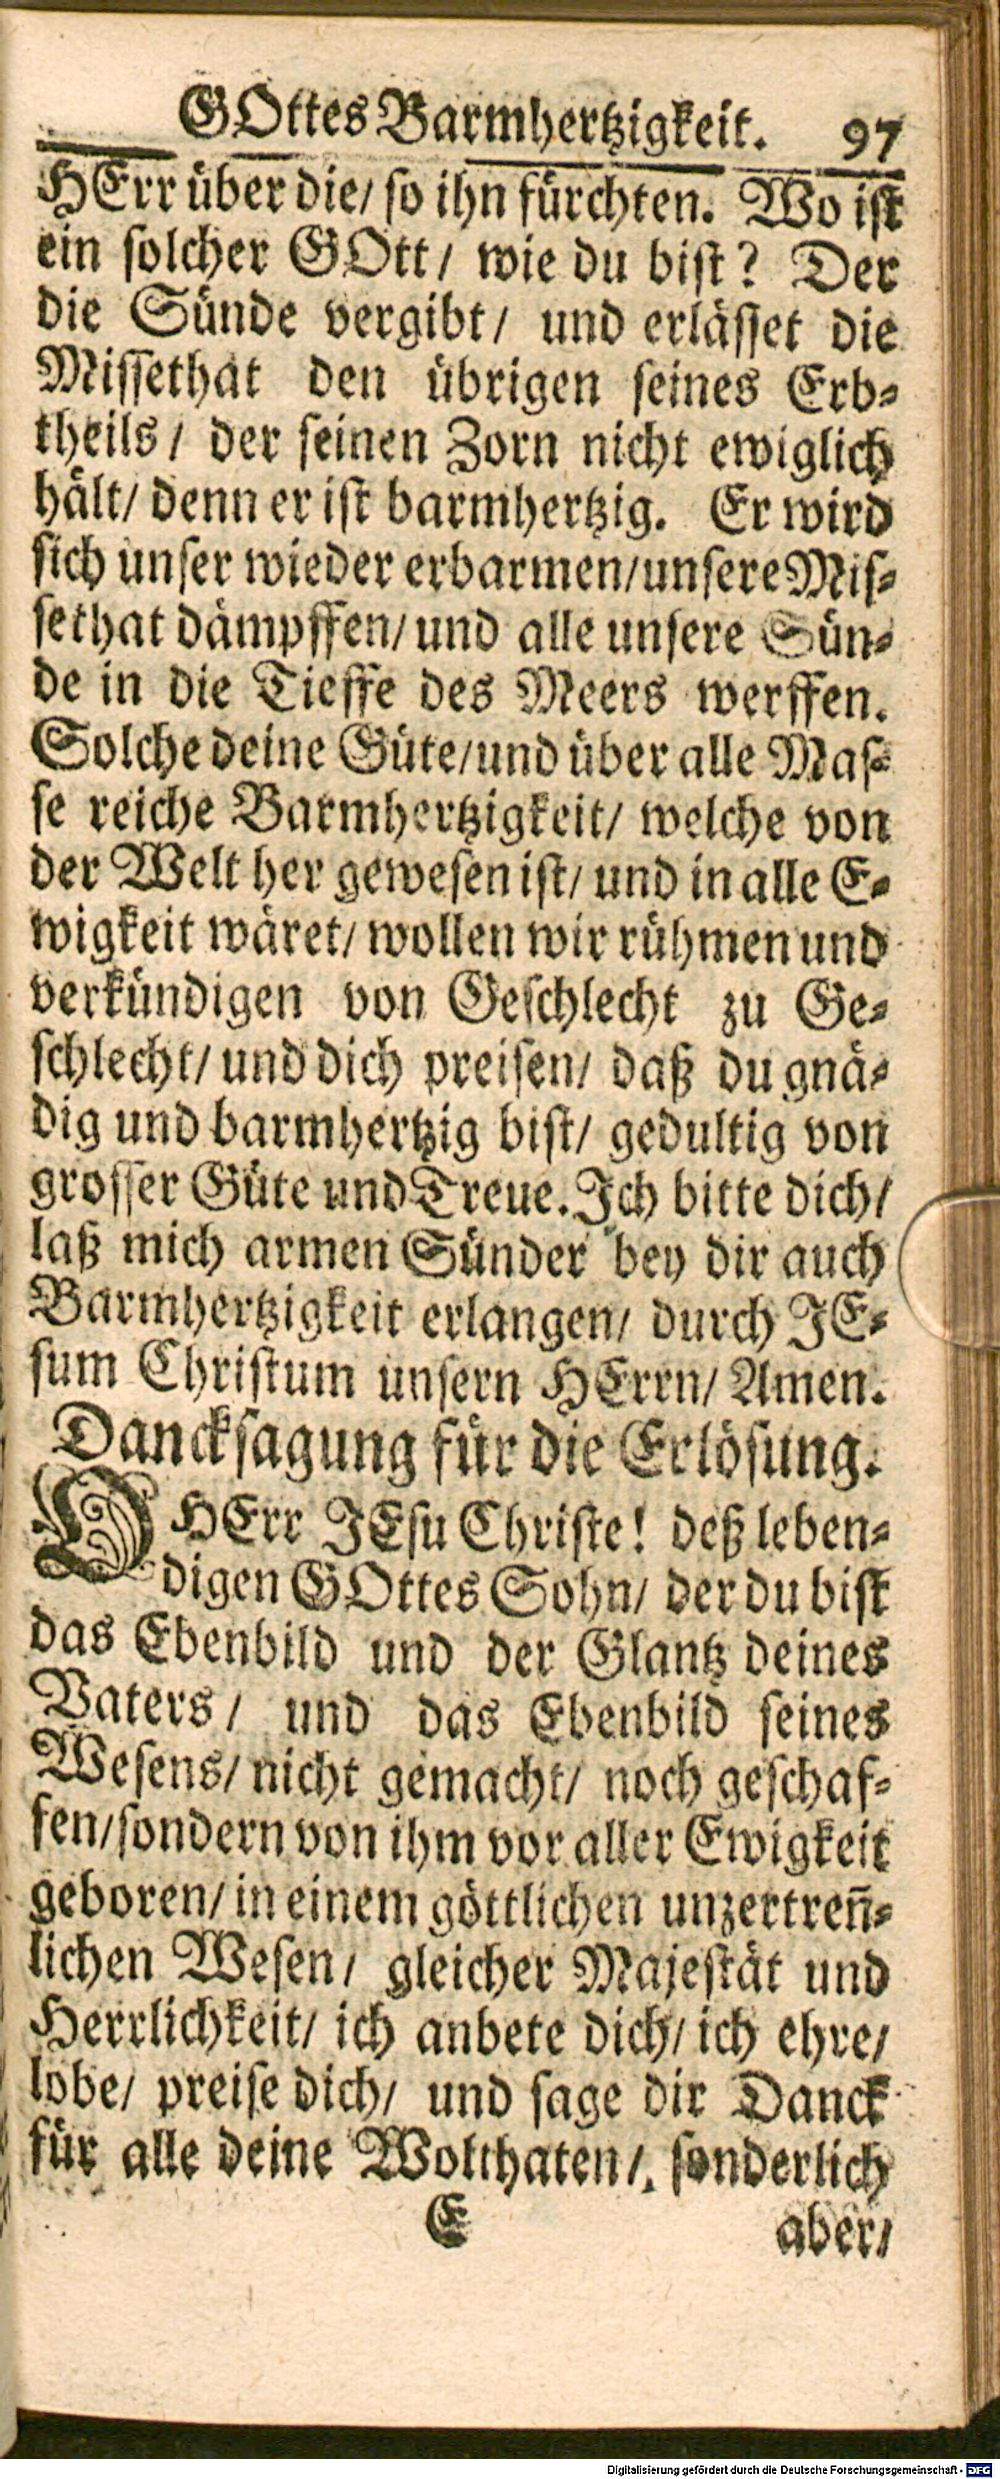 GOttes Barmhertzigkeit. 97
HErr über die/ so ihn fürchten. Wo ist
ein solcher GOtt/ wie du bist? Der
die Sünde vergibt/ und erlässet die
Missethat den übrigen seines Erb-
theils/ der seinen Zorn nicht ewiglich
hält/ denn er ist barmhertzig. Er wird
sich unser wieder erbarmen/unsere Mis-
sethat dämpffen/und alle unsere Sün-
de in die Tieffe des Meers werffen.
Solche deine Güte/und über alle Mas-
se reiche Barmhertzigkeit/ welche von
der Welt her gewesen ist/ und in alle E-
wigkeit wäret/ wollen wir rühmen und
verkündigen von Geschlecht zu Ge-
schlecht/ und dich preisen/ daß du gnä-
dig und barmhertzig bist/ gedultig von
grosser Güte und Treue. Ich bitte dich/
laß mich armen Sünder bey dir auch
Barmhertzigkeit erlangen/ durch JE-
sum Christum unsern HErrn/ Amen.
Dancksagung für die Erlösung.
O HErr JEsu Christe! deß leben-
digen GOttes Sohn/ der du bist
das Ebenbild und der Glantz deines
Vaters/ und das Ebenbild seines
Wesens/ nicht gemacht/ noch geschaf-
fen/sondern von ihm vor aller Ewigkeit
geboren/ in einem göttlichen unzertreñ-
lichen Wesen/ gleicher Majestät und
Herrlichkeit/ ich anbete dich/ ich ehre/
lobe/ preise dich/ und sage dir Danck
für alle deine Wolthaten/. sonderlich
E aber/
Digitalisierung gefördert durch die Deutsche Forschungsgemeinschaft - DFG